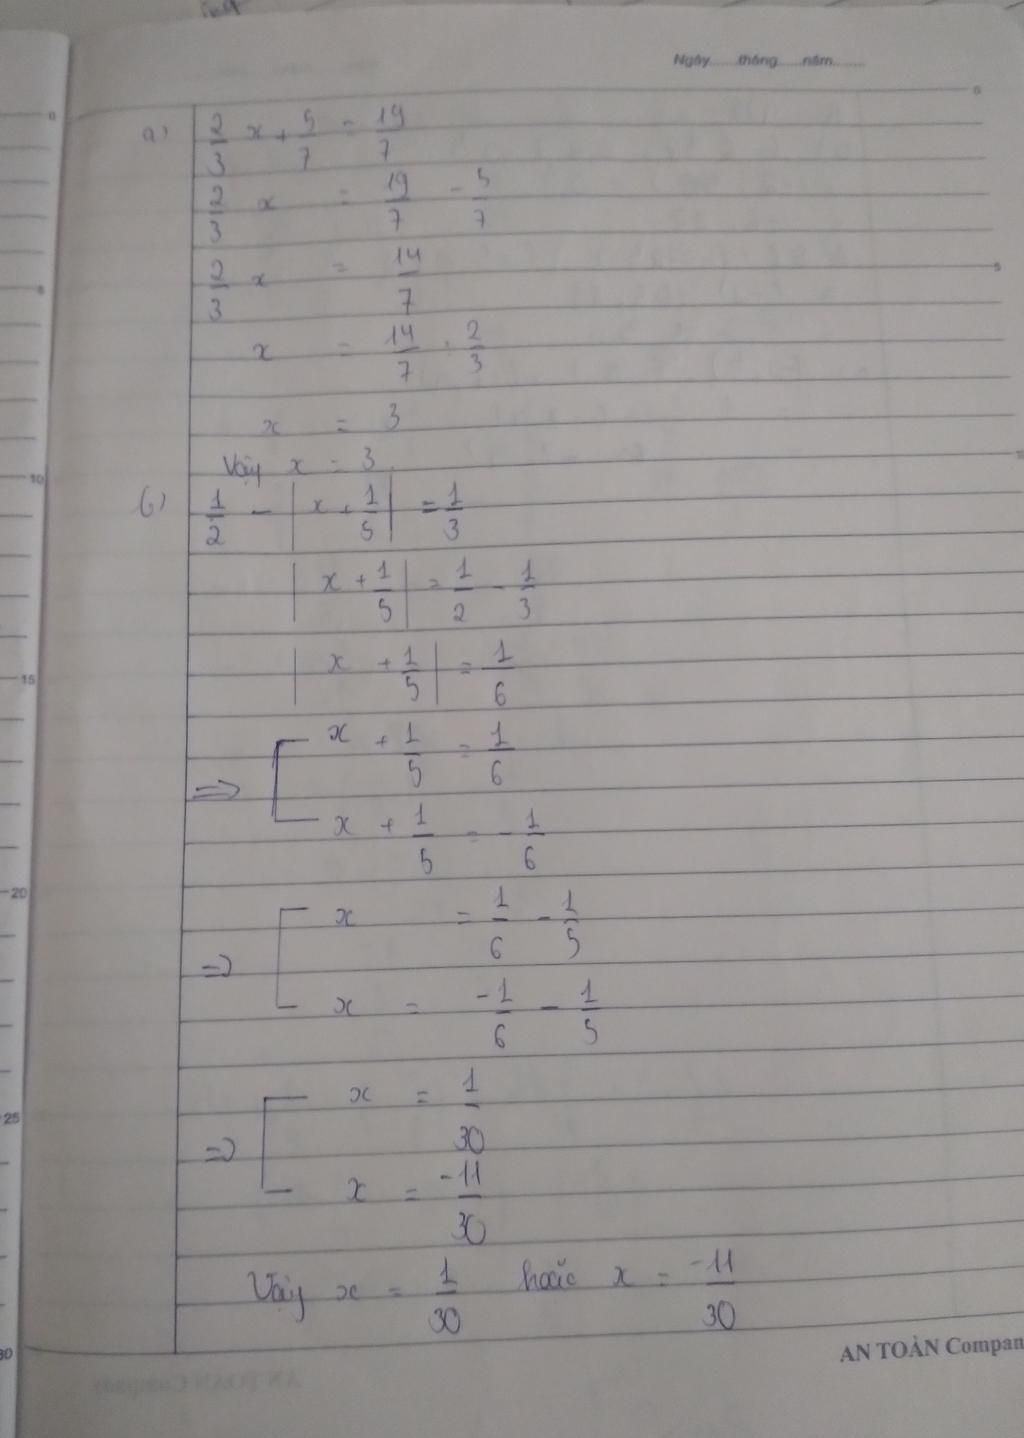 Ngày......tháng......năm.......
a) 2/3 x + 5/7 = 19/7
2/3 x = 19/7 - 5/7
2/3 x = 14/7
x = 14/7 : 2/3
x = 3
Vậy x = 3
b) 1/2 - |x + 1/5| = 1/3
|x + 1/5| = 1/2 - 1/3
|x + 1/5| = 1/6
=> [ x + 1/5 = 1/6
x + 1/5 = -1/6
=> [ x = 1/6 - 1/5
x = -1/6 - 1/5
=> [ x = 1/30
x = -11/30
Vậy x = 1/30 hoặc x = -11/30
AN TOÀN Compan